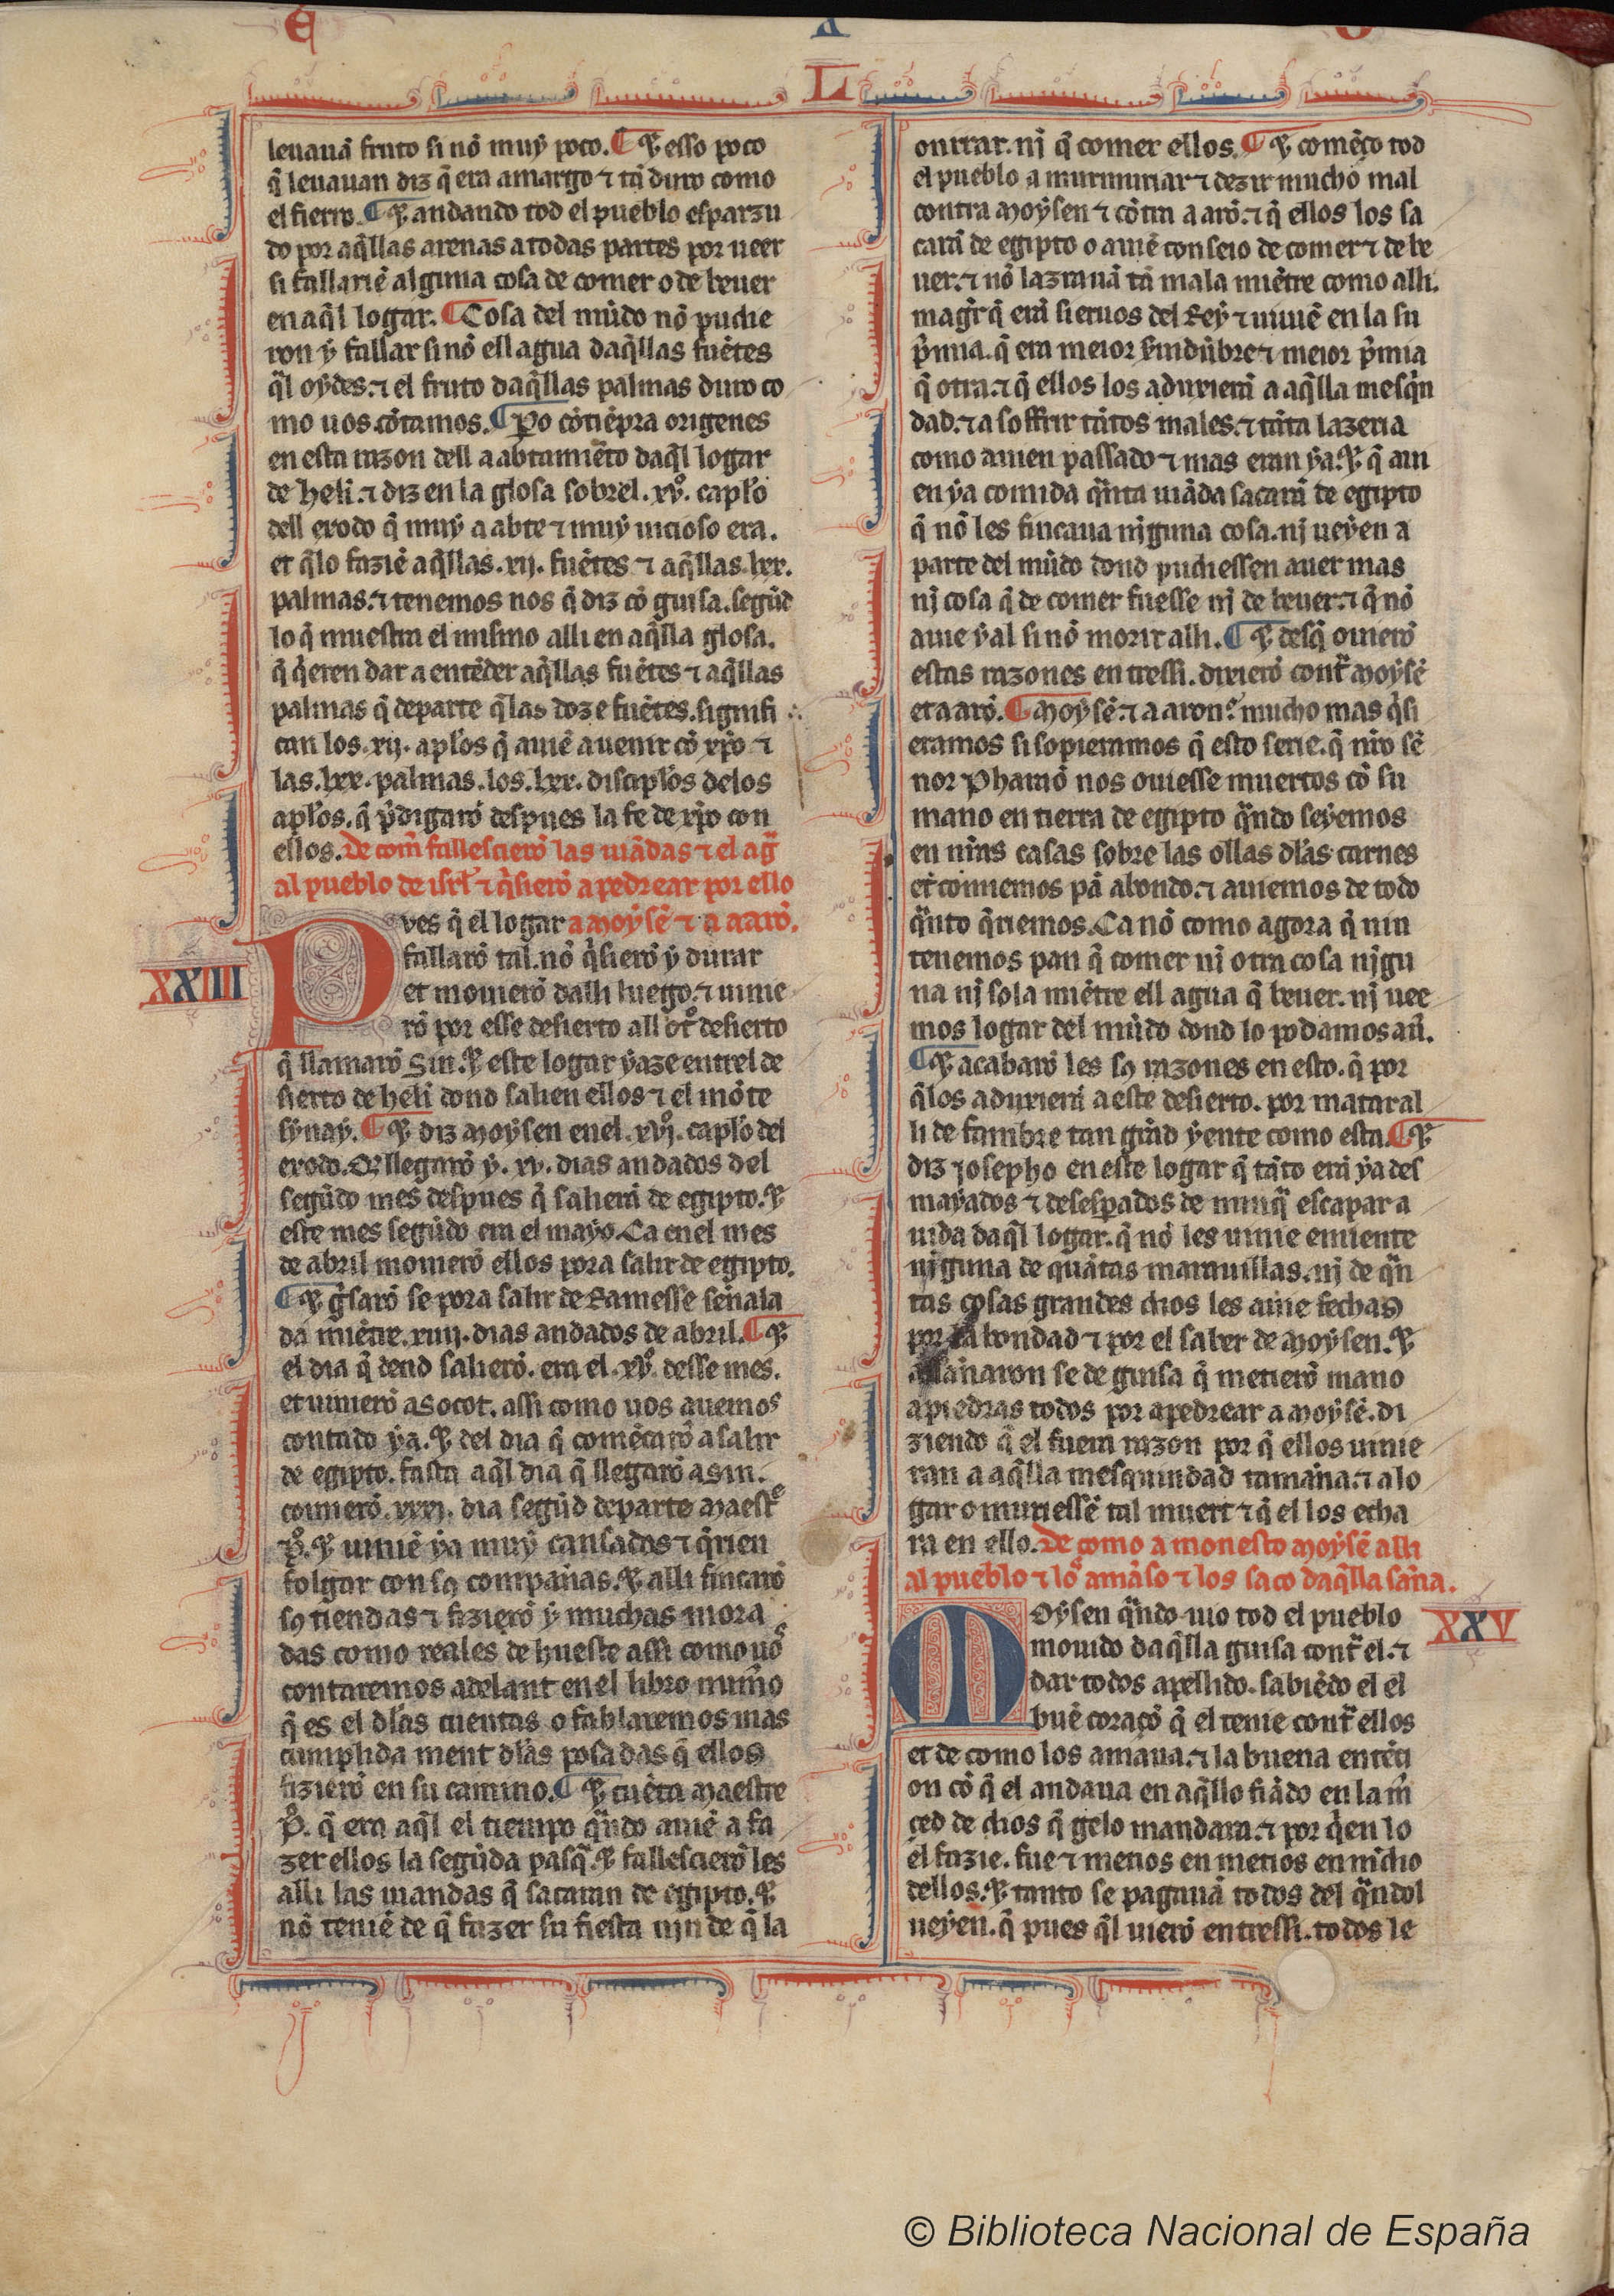 L
leuauã fruto si nõ muy poco. ¶ Et esso poco
q̃ leuauan diz q̃ era amargo ⁊ tã duro como
el fierro. ¶ Et andando tod el pueblo esparzu
do por aq̃llas arenas a todas partes por ueer
si fallariẽ alguna cosa de comer o de beuer
en aq̃l logar. ¶ Cosa del mũdo nõ pudie
ron y fallar si nõ ell agua daq̃llas fuẽtes
q̃l oydes. ⁊ el fruto daq̃llas palmas duro co
mo uos cõtamos. ¶ Po cõtiẽpra origenes
en esta razon dell aabtamiẽto daq̃l logar
de heli. ⁊ diz en la glosa sobrel .xvº. caplõ
dell exodo q̃ muy aabte ⁊ muy uicioso era.
et q̃lo faziẽ aq̃llas .xij. fuẽtes ⁊ aq̃llas .lxx.
palmas. ⁊ tenemos nos q̃ diz cõ guisa. segũd
lo q̃ muestra el mismo alli en aq̃lla glosa.
q̃ q̃eren dar a entẽder aq̃llas fuẽtes ⁊ aq̃llas
palmas q̃ departe q̃ las doze fuẽtes. signifi
can los .xij. aplõs q̃ auiẽ auenir cõ xp̃o ⁊
las .lxx. palmas. los .lxx. disciplõs delos
aplõs. q̃ p̃digarõ despues la fe de xp̃o con
ellos. De com̃ fallesçierõ las uiãdas ⁊ el ag̃
al pueblo de isrl̃ ⁊ q̃sierõ apedrear por ello
a moysẽ ⁊ a aarõ.
XXIIII
Pves q̃ el logar
fallarõ tal. nõ q̃sierõ y durar
et mouierõ dalli luego. ⁊ uinie
rõ por esse desierto all otº desierto
q̃ llamarõ Sin. Et este logar yaze entrel de
sierto de heli dond salien ellos ⁊ el mõte
synay. ¶ Et diz moysen enel .xvjº. caplõ del
exodo. Q̃ llegarõ y .xv. dias andados del
segũdo mes despues q̃ salierã de egipto. Et
este mes segũdo era el mayo. Ca enel mes
de abril mouierõ ellos pora salir de egipto.
¶ Et g̃sarõ se pora salir de Ramesse señala
da miẽtre .xiiij. dias andados de abril. ¶ Et
el dia q̃ dend salierõ. era el .xvº. desse mes.
et uinierõ a socot. assi como uos auemos
contado ya. Et del dia q̃ comẽçarõ a salir
de egipto. fasta aq̃l dia q̃ llegarõ a sin.
comierõ .xxxj. dia segũd departe maestᵉ
pº. Et uiniẽ ya muy cansados ⁊ q̃rien
folgar con sꝯ compañas. Et alli fincarõ
sꝯ tiendas ⁊ fizierõ y muchas mora
das como reales de hueste assi como uos
contaremos adelant enel libro num̃o
q̃ es el dl̃as cuentas o fablaremos mas
cumplida ment dl̃as posadas q̃ ellos
fizierõ en su camino. ¶ Et cuẽta maestre
pº. q̃ era aq̃l el tiempo q̃ndo auiẽ a fa
zer ellos la segũda pasq̃. Et fallesçierõ les
alli las uiandas q̃ sacaran de egipto. Et
nõ teniẽ de q̃ fazer su fiesta nin de q̃ la
onrrar. nj̃ q̃ comer ellos. ¶ Et comẽço tod
el pueblo a murmuriar ⁊ dezir mucho mal
contra moysen ⁊ cõtra aarõ. ⁊ q̃ ellos los sa
carã de egipto o auiẽ conseio de comer ⁊ de be
uer. ⁊ nõ lazrauã tã mala miẽtre como alli.
mag̃r q̃ erã sieruos del Rey ⁊ uiuiẽ en la su
p̃mia. q̃ era meior s̃uidũbre ⁊ meior p̃mia
q̃ otra. ⁊ q̃ ellos los aduxierã a aq̃lla mesq̃n
dad. ⁊ a soffrir tãtos males. ⁊ tãta lazeria
como auien passado ⁊ mas eran ya. Et q̃ aui
en ya comida q̃nta uiãda sacarã de egipto
q̃ nõ les fincaua nj̃guna cosa. nj̃ ueyen a
parte del mũdo dond pudiessen auer mas
nj̃ cosa q̃ de comer fuesse nj̃ de beuer. ⁊ q̃ nõ
auie y al si nõ morir alli. ¶ Et desq̃ ouierõ
estas razones entressi. dixierõ cont̃ moysẽ
et a arõ. ¶ Moysẽ. ⁊ aaron. mucho mas q̃si
eramos si sopieramos q̃ esto serie. q̃ nr̃o sẽ
nor Pharaõ nos ouiesse muertos cõ su
mano en tierra de egipto q̃ndo seyemos
en nr̃as casas sobre las ollas dl̃as carnes
et comiemos pã abondo. ⁊ auiemos de todo
q̃nto q̃riemos. Ca nõ como agora q̃ nin
tenemos pan q̃ comer nj̃ otra cosa nj̃gu
na nj̃ sola miẽtre ell agua q̃ beuer. nj̃ uee
mos logar del mũdo dond lo podamos auẽ.
¶ Et acabarõ les sꝯ razones en esto. q̃ por
q̃ los aduxierã a este desierto. por matar al
li de fambre tan grãd yente como esta. ¶ Et
diz josepho en este logar q̃ tãto erã ya des
mayados ⁊ desesp̃ados de nunq̃ escapar a
uida daq̃l logar. q̃ nõ les uinie emiente
nj̃guna de quãtas marauillas. nj̃ de q̃n
tas cosas grandes dios les auie fechas
por la bondad ⁊ por el saber de moysen. Et
assañaron se de guisa q̃ metierõ mano
a piedras todos por apedrear a moysẽ. di
ziendo q̃ el fuera razon por q̃ ellos uinie
ran a aq̃lla mesquindad tamaña. ⁊ a lo
gar o muriessẽ tal muert ⁊ q̃ el los echa
ra en ello. De como amonesto moysẽ alli
al pueblo ⁊ lº amãso ⁊ los saco daq̃lla saña.
XXV
Moysen q̃ndo uio tod el pueblo
mouido daq̃lla guisa cont̃ el. ⁊
dar todos apellido. sabiẽdo el el
buẽ coraçõ q̃ el tenie cont̃ ellos
et de como los amaua. ⁊ la buena entẽti
on cõ q̃ el andaua en aq̃llo fiãdo en la m̃
çed de dios q̃ gelo mandara. ⁊ por q̃en lo
el fazie. fue ⁊ metios en medios en mẽdio
dellos. Et tanto se pagauã todos del q̃ndol
ueyen. q̃ pues q̃l uierõ entressi. todos le
© Biblioteca Nacional de España